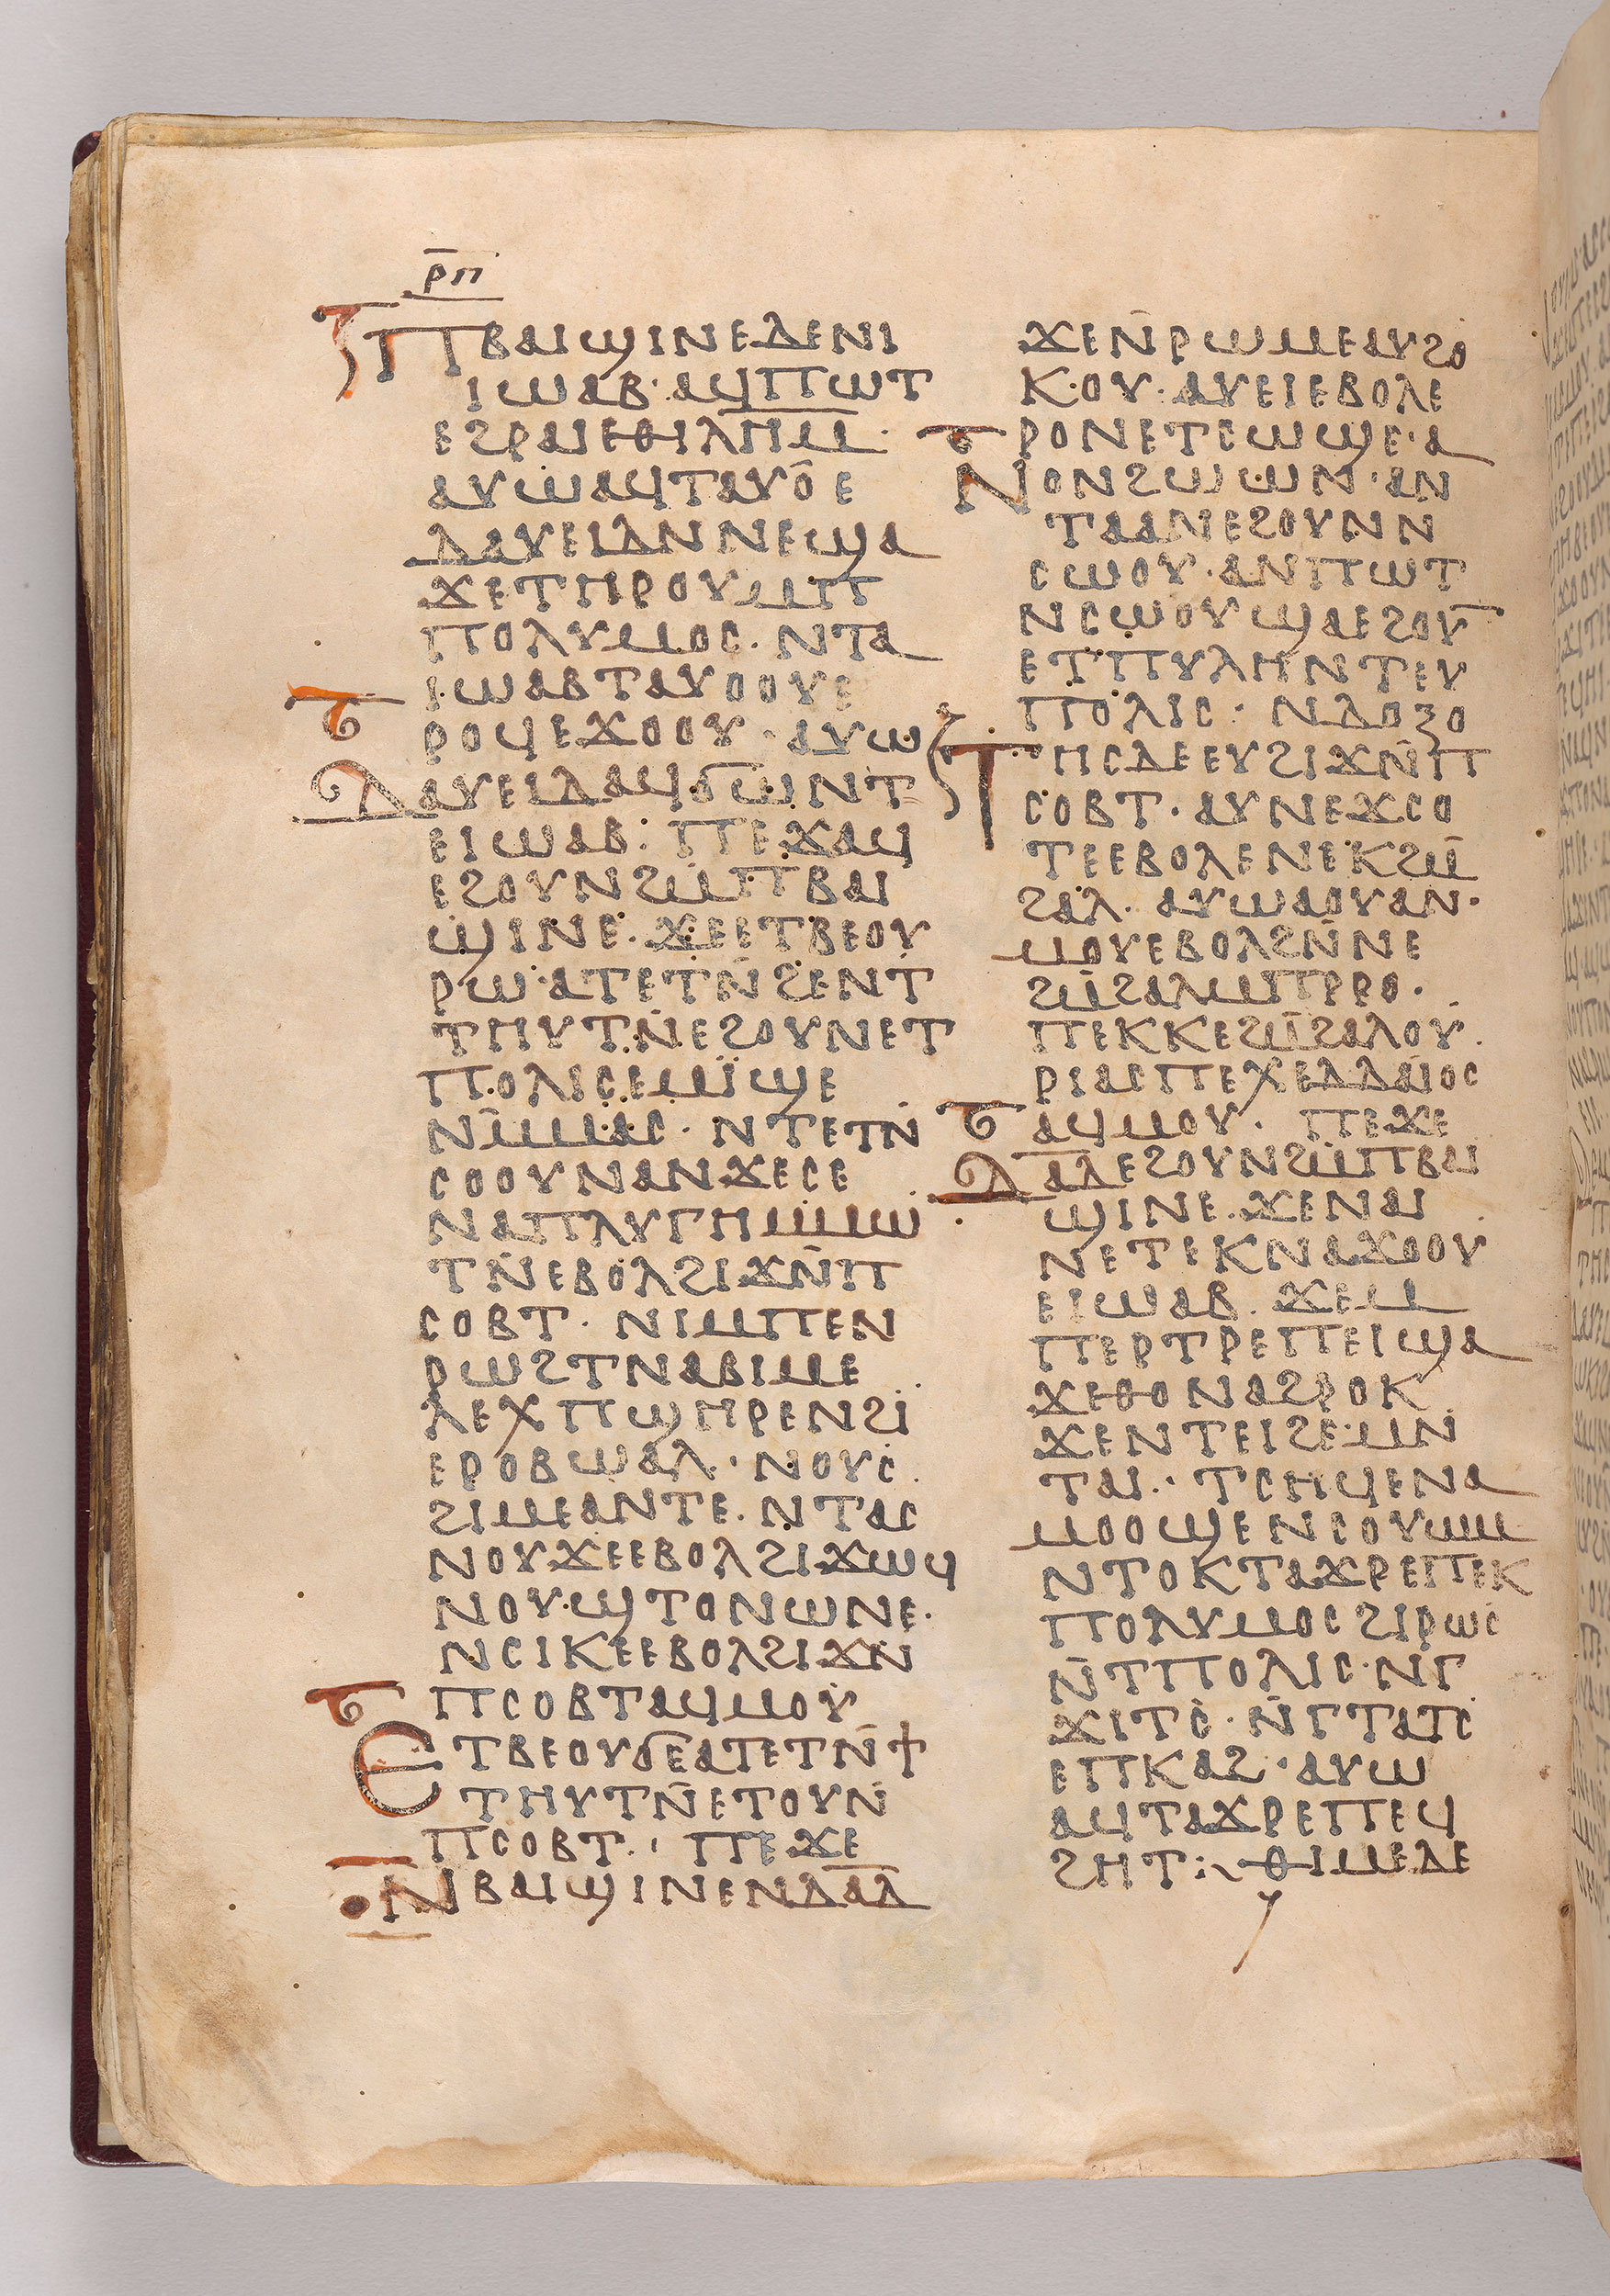 ⲣ̅ⲡ̅
ⲡⲃⲁⲓϣⲓⲛⲉⲇⲉⲛⲓ
ⲓⲱⲁⲃ· ⲁϥⲡⲱⲧ
ⲉϩⲣⲁⲓⲉⲑⲓⲗ̅ⲏ̅ⲙ̅·
ⲁⲩⲱⲁϥⲧⲁⲩⲟⲉ
ⲇⲁⲩⲉⲓⲇⲛⲛⲉϣⲁ
ϫⲉⲧⲏⲣⲟⲩⲙⲡ
ⲡⲟⲗⲩⲙⲟⲥ· ⲛⲧⲁ
ⲓⲱⲁⲃⲧⲁⲩⲟⲟⲩⲉ
ⲣⲟϥⲉϫⲟⲟⲩ· ⲁⲩⲱ
ⲇⲁⲩⲉⲓⲇⲁϥϭⲱⲛⲧ
ⲉⲓⲱⲁⲃ: ⲡⲉϫⲁϥ
ⲉϩⲟⲩⲛϩⲙ̅ⲡⲃⲁⲓ
ϣⲓⲛⲉ· ϫⲉⲉⲧⲃⲉⲟⲩ
ⲣⲱ· ⲁⲧⲉⲧⲛ̅ϩⲉⲛⲧ
ⲧⲏⲩⲧⲛ̅ⲉϩⲟⲩⲛⲉⲧ
ⲡⲟⲗⲓⲥⲉⲙⲓ̈ϣⲉ
ⲛⲙ̅ⲙⲁⲥ· ⲛⲧⲉⲧⲛ̅
ⲥⲟⲟⲩⲛⲁⲛϫⲉⲥⲉ
ⲛⲁⲡⲗⲩⲅⲏⲙⲙⲱ
ⲧⲛ̅ⲉⲃⲟⲗϩⲓϫⲛ̅ⲡ
ⲥⲟⲃⲧ· ⲛⲓⲙⲡⲉⲛ
ⲣⲱϩⲧⲛⲁⲃⲓⲙⲉ
ⲗⲉⲭⲡϣⲏⲣⲉⲛϩⲓ
ⲉⲣⲟⲃⲱⲁⲗ· ⲛⲟⲩⲥ
ϩⲓⲙⲉⲁⲛⲧⲉ· ⲛⲧⲁⲥ
ⲛⲟⲩϫⲉⲉⲃⲟⲗϩⲓϫⲱϥ
ⲛⲟⲩϣⲧⲟⲛⲱⲛⲉ·
ⲛⲥⲓⲕⲉⲉⲃⲟⲗϩⲓϫⲛ̅
ⲡⲥⲟⲃⲧⲁϥⲙⲟⲩ
ⲉⲧⲃⲉⲟⲩϭⲉⲁⲧⲉⲧⲛ̅ϯ
ⲧⲏⲩⲧⲛ̅ⲉⲧⲟⲩⲛ̅
ⲡⲥⲟⲃⲧ· ⲡⲉϫⲉ
ⲛⲃⲁⲓϣⲓⲛⲉⲛⲇ̅ⲁ̅ⲇ̅
ϫⲉⲛ̅ⲣⲱⲙⲉⲁⲩϩⲟ
ⲕ·ⲟⲩ· ⲁⲩⲉⲓⲉⲃⲟⲗⲉ
ⲣⲟⲛⲉⲧⲥⲱϣⲉ· ⲁ
ⲛⲟⲛϩⲱⲱⲛ· ⲁⲛ
ⲧⲁⲁⲛⲉϩⲟⲩⲛⲛ
ⲥⲱⲟⲩ· ⲁⲛⲡⲱⲧ
ⲛⲥⲱⲟⲩϣⲁⲉϩⲟⲩ̅
ⲉⲧⲡⲩⲗⲏⲛⲧⲉⲩ
ⲡⲟⲗⲓⲥ· ⲛⲇⲟⲝⲟ
ⲧⲏⲥⲇⲉⲉⲩϩⲓϫⲛ̅ⲡ
ⲥⲟⲃⲧ· ⲁⲩⲛⲉϫⲥⲟ
ⲧⲉⲉⲃⲟⲗⲉⲛⲉⲕϩⲙ̅
ϩⲁⲗ· ⲁⲩⲱⲁⲟⲩⲁⲛ·
ⲙⲟⲩⲉⲃⲟⲗϩⲛ̅ⲛⲉ
ϩⲙ̅ϩⲁⲗⲙⲡⲣⲣⲟ·
ⲡⲉⲕⲕⲉϩⲙ̅ϩⲁⲗⲟⲩ
ⲣⲓⲁⲥⲡⲉⲭⲉⲇⲇⲁⲓⲟⲥ
ⲁϥⲙⲟⲩ· ⲡⲉϫⲉ
ⲇ̅ⲁ̅ⲇ̅ⲉϩⲟⲩⲛϩⲙ̅ⲡⲃⲁⲓ
ϣⲓⲛⲉ· ϫⲉⲛⲁⲓ
ⲛⲉⲧⲉⲕⲛⲁϫⲟⲟⲩ
ⲉⲓⲱⲁⲃ· ϫⲉⲙ
ⲡⲉⲣⲧⲣⲉⲡⲉⲓϣⲁ
ϫⲉⲑⲟⲛⲁϩⲣⲟⲕ
ϫⲉⲛⲧⲉⲓϩⲉ·ⲙⲛ̅
ⲧⲁⲓ· ⲧⲥⲏϥⲉⲛⲁ
ⲙⲟⲟϣⲉⲛⲥⲟⲩⲱⲙ
ⲛⲧⲟⲕⲧⲁϫⲣⲉⲡⲉⲕ
ⲡⲟⲗⲩⲙⲟⲥϩⲓⲣⲱⲥ
ⲛ̅ⲧⲡⲟⲗⲓⲥ· ⲛⲅ
ϫⲓⲧⲥ· ⲛ̅ⲅⲧⲁⲧⲥ
ⲉⲡⲕⲁϩ· ⲁⲩⲱ
ⲁϥⲧⲁϫⲣⲉⲡⲉϥ
ϩⲏⲧ: ⲑⲓⲙⲉⲇⲉ